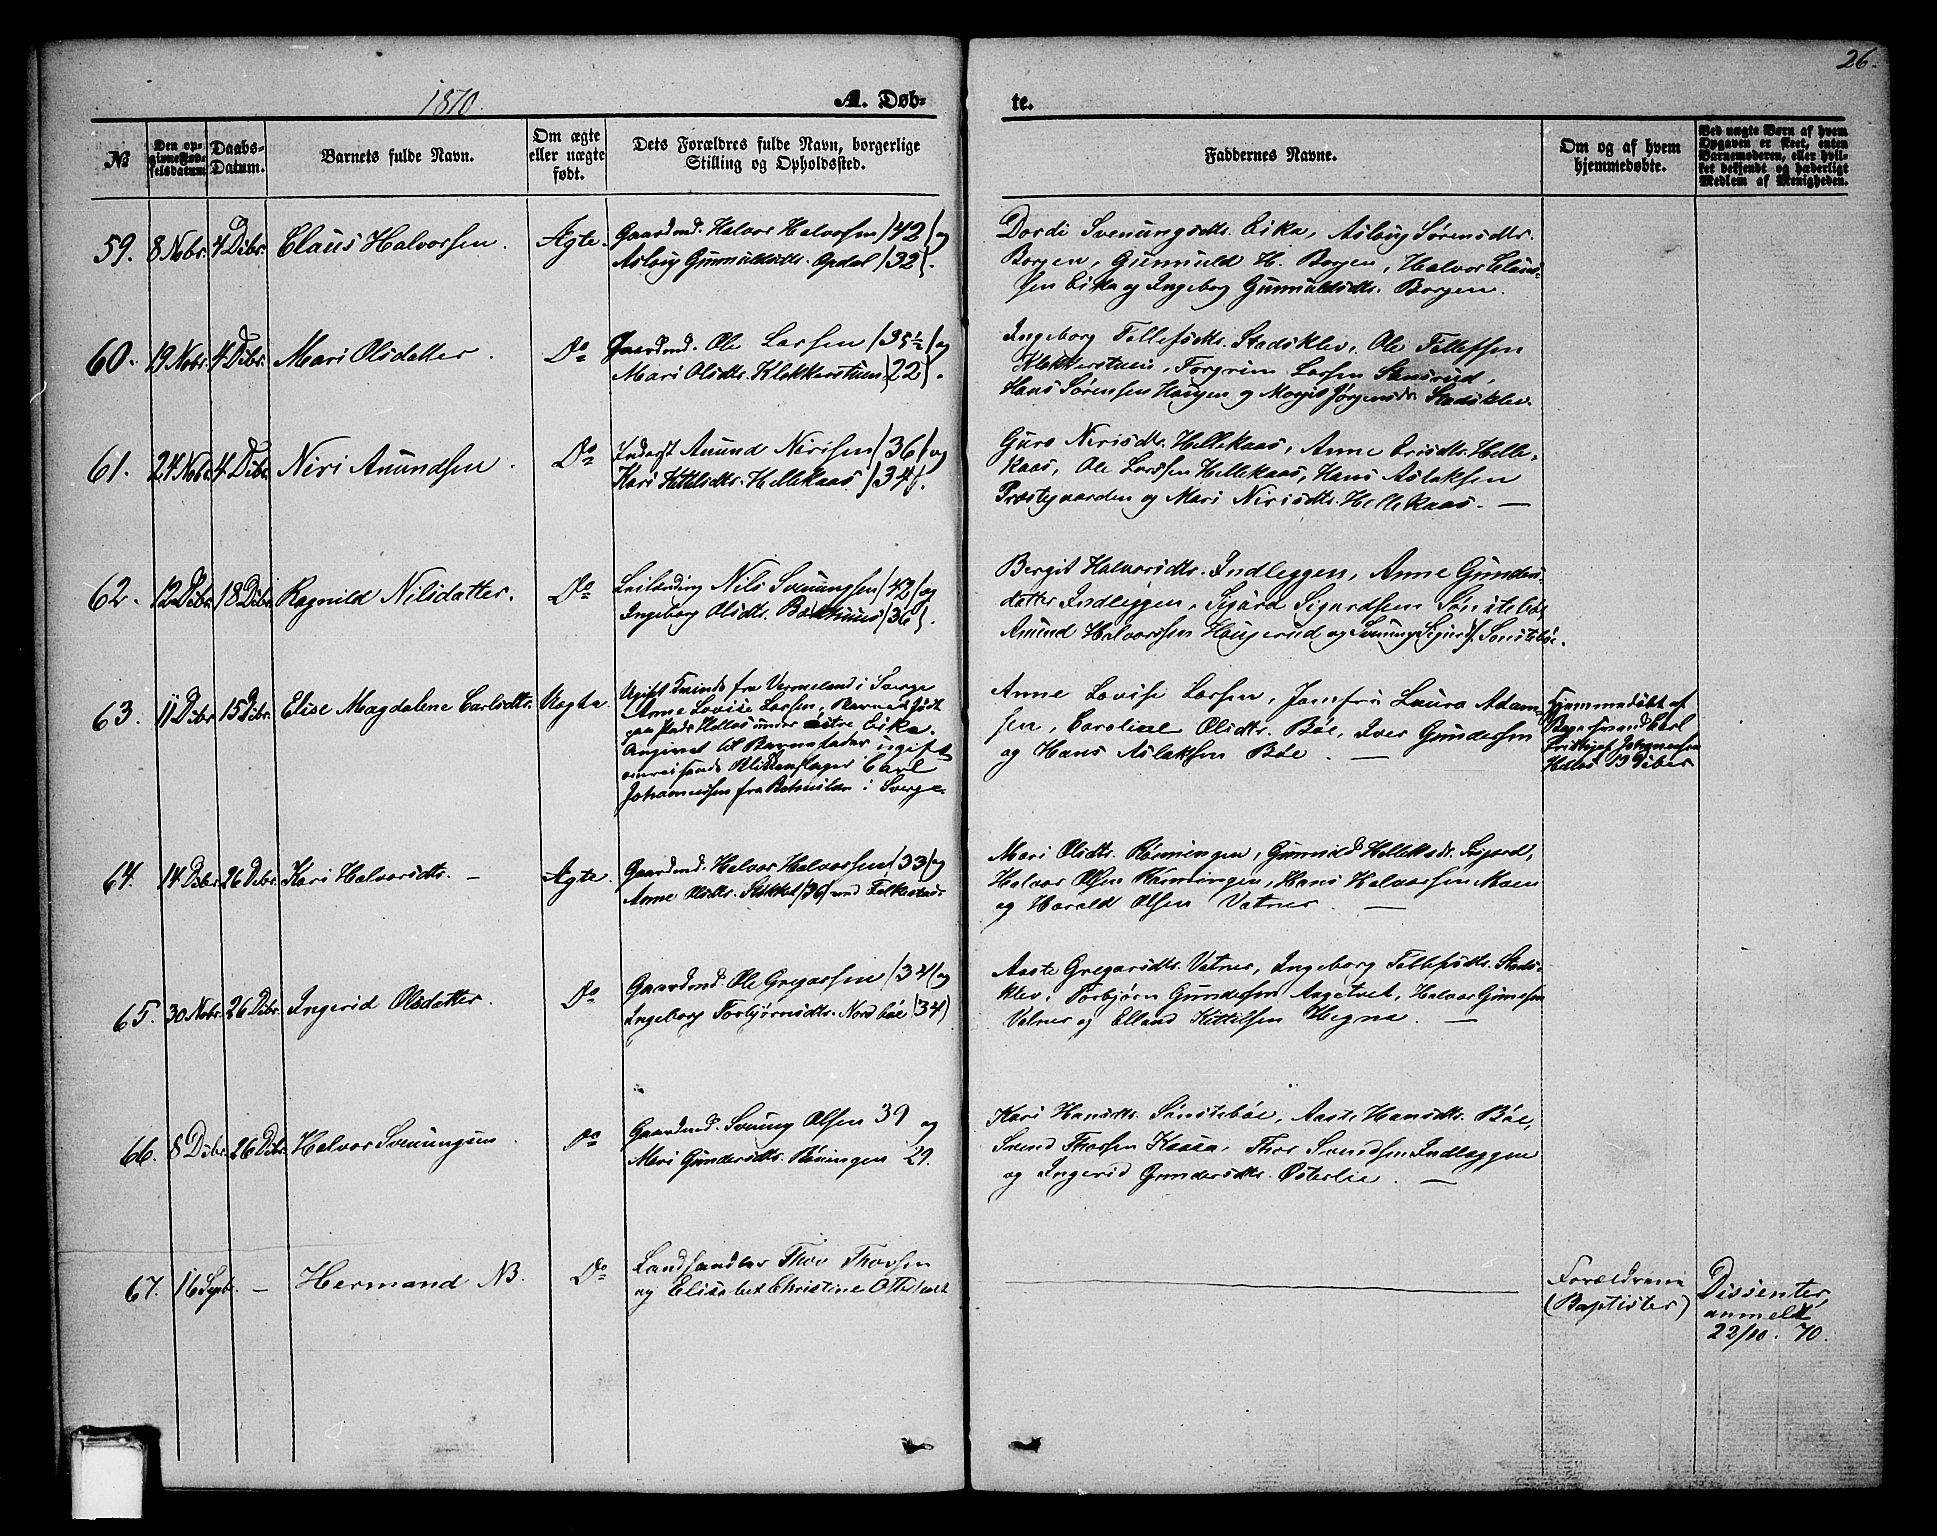 26.
1870.
A. Døb-
te.
No
Den op-
givne Fød-
selsdatum
Daabs-
Datum.
Barnets fulde Navn.
Om ægte
eller uægte
født.
Dets Forældres fulde Navn, borgerlige
Stilling og Opholdssted.
Faddernes Navne.
Om og af hvem
hjemmedøbte.
Ved uægte Børn af hvem
Opgaven er skeet, enten
Barnemoderen, eller hvil-
ket bekjendt og hæderligt
Medlem af Menigheden.
59. 8 Nobr. 4 Dcbr. Claus Halvorsen. Ægte.
Gaardmd. Halvor Halvorsen /42/ og
Aslaug Gunnuldsdtr. Opdal /32/.
Dordi Svenungsdtr. Eika, Aslaug Sørensdtr.
Borgen, Gunnuld H. Borgen, Halvor Claus-
sen Eika og Ingeborg Gunnuldsdtr. Borgen.
60. 19 Nobr. 4 Dcbr. Mari Olsdatter. Do
Gaardmd. Ole Larsen /35½/ og
Mari Olsdtr. Klokkerstuen /22/.
Ingeborg Tellefsdtr. Stadsklev, Ole Tellefsen
Klokkerstuen, Torgrim Larsen Stensrud,
Hans Sørensen Haugen og Margit Jørgensdr Stadsklev.
61. 24 Nobr. 4 Dcbr. Niri Anundsen. Do
Inderst Anund Nirisen /36/ og
Kari Kittilsdtr. Hellekaas /34/.
Guro Nirisdtr. Hellekaas, Anne Erisdtr. Helle-
kaas, Ole Larssen Hellekaas, Hans Aslaksen
Præstegaarden og Mari Nirisdtr. Hellekaas. —
62. 12 Dcbr. 18 Dcbr. Ragnild Nilsdatter. Do
Leilending Nils Svenungsen /42/ og
Ingeborg Olsdtr. Bakhuus /36/.
Bergit Halvorsdtr. Indleggen, Anne Gunders-
datter Indleggen, Sigurd Sigurdsen Sønstebøe,
Amund Halvorssen Haugerud og Svenung Sigurds. Sønstebøe.
63. 11 Dcbr. 15 Dcbr. Elise Magdalene Carlsdtr. Uægte.
Ugift Kvinde fra Vermeland i Sverge
Anne Lovise Larsen, Barnet født
paa Pads Hellos under østre Eika.
Angivet til Barnefader ugift
omreisende Blikkenslager Carl
Johannessen fra Bohuslen i Sverge.
Anne Lovise Larsen, Jomfru Laura Adam-
sen, Caroline Olsdtr. Bøe, Iver Gundersen
og Hans Aslaksen Bøe. —
Hjemmedøbt af
Bagersvend Carl
Johannessen
Hellos 13 Dcber
64. 14 Dcbr. 26 Dcbr. Kari Halvorsdtr. — Ægte.
Gaardmd. Halvor Halvorsen /33/ og
Anne Olsdtr. Slokket /36/ und Folkestad.
Mari Olsdtr. Rønningen, Gunnild Helleksdr. Søgard,
Halvor Olsen Rønningen, Hans Halvorsen Moen
og Harald Olsen Vatner. —
65. 30 Nobr. 26 Dcbr. Ingerid Olsdatter. Do
Gaardmd. Ole Gregarsen /34/ og
Ingeborg Torbjørnsdtr. Nordbøe /34/
Aaste Gregarsdtr. Vatner, Ingeborg Tellefsdtr. Stads-
klev, Torbjørn Gundersen Angetvet, Halvor Gunnesen
Vatner og Elland Kittilsen Hegna. —
66. 8 Dcbr. 26 Dcbr. Halvor Svenungsen Do
Gaardmd. Svenung Olsen 39 og
Mari Gundersdtr. Rønningen 29.
Kari Hansdtr. Sønstebøe, Aaste Hansdtr. Bøe,
Svend Thorsen Kaasa, Thor Svendsen Indleggen
og Ingerid Gundersdtr. Østerlie. —
67. 16 Septbr. — Hermand NB. Do
Landhandler Thov Thovsen
og Elisabet Christine
Forældrene
(Baptister)
Dissenter,
anmeldt
22/10. 70.